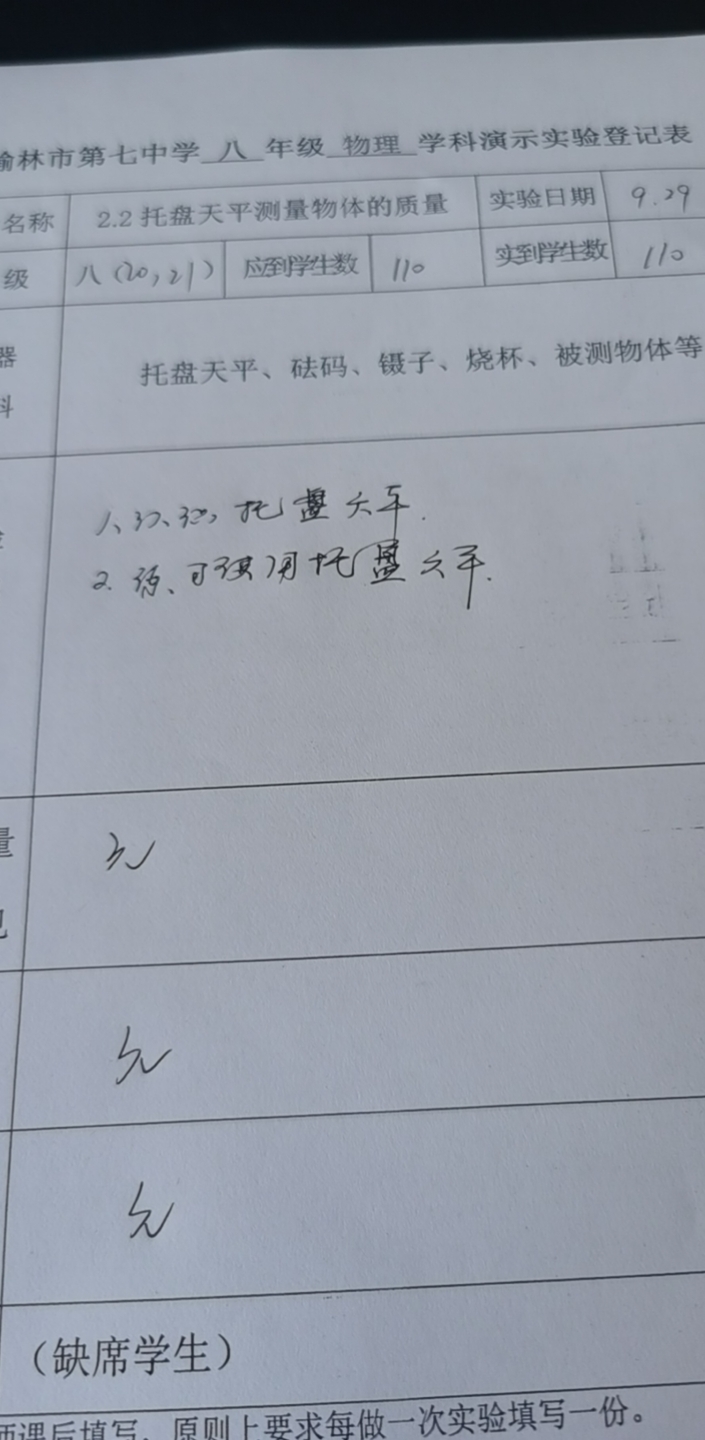 榆林市第七中学 八 年级 物理 学科演示实验登记表
名称 2.2 托盘天平测量物体的质量 实验日期 9.29
级 八（20，21） 应到学生数 110 实到学生数 110
器
料
托盘天平、砝码、镊子、烧杯、被测物体等
1、认识托盘天平.
2. 练习使用托盘天平.
量
无
见
无
无
（缺席学生）
师课后填写，原则上要求每做一次实验填写一份。